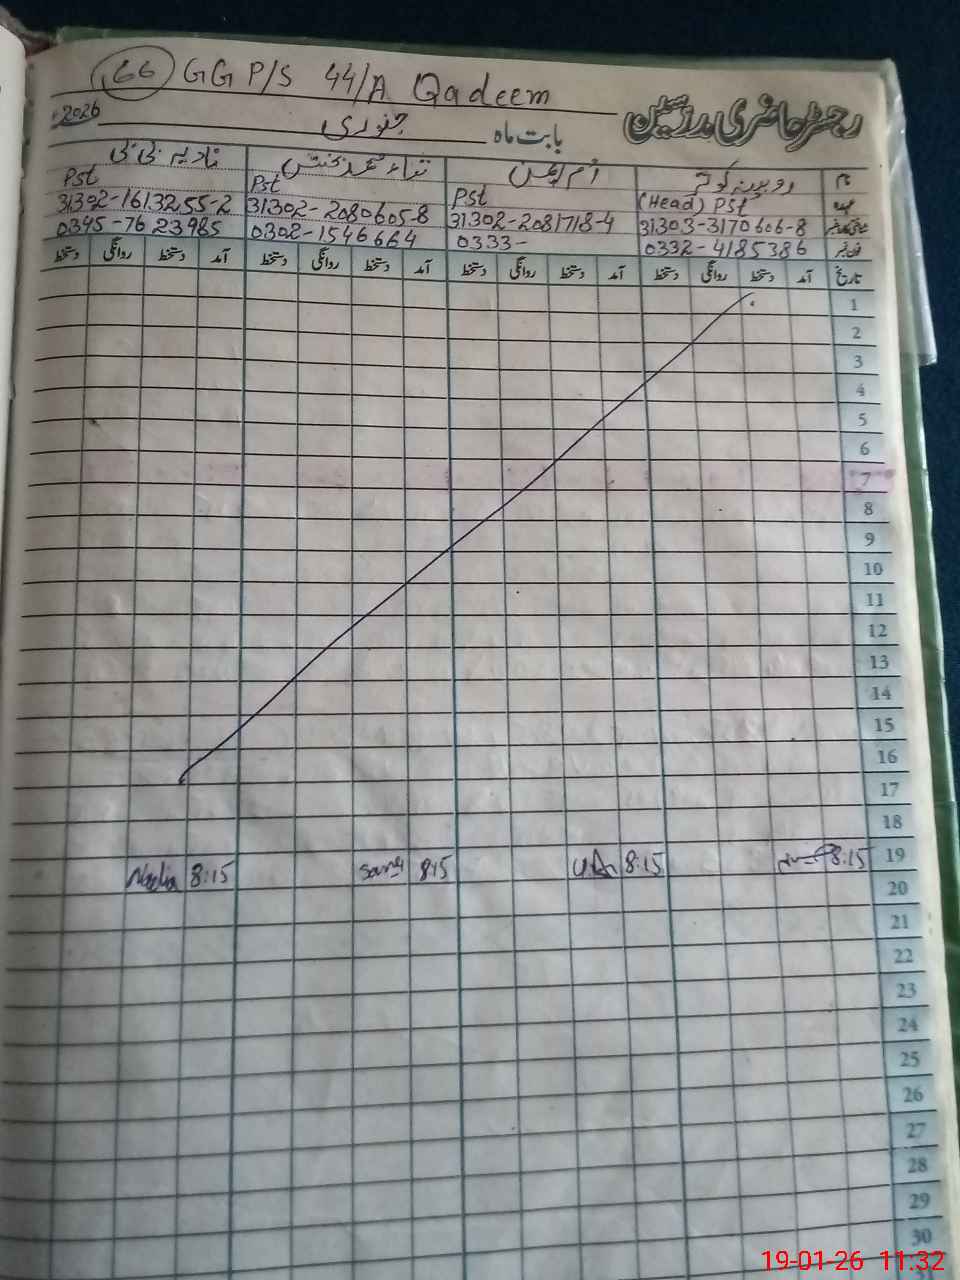 66 GGP/S 44/A Qadeem
رجسٹر حاضری مدرسین
بابت ماہ جنوری 2026
نام روبینہ کوثر ام ایمن ثناء محمد بخش نادیہ بی بی
عہدہ (Head) Pst Pst Pst Pst
شناختی کارڈ نمبر 31303-3170606-8 31302-2081718-4 31302-2080605-8 31302-1613255-2
فون نمبر 0332-4185386 0333- 0302-1546664 0345-7623985
تاریخ آمد دستخط روانگی دستخط آمد دستخط روانگی دستخط آمد دستخط روانگی دستخط آمد دستخط روانگی دستخط
1
2
3
4
5
6
7
8
9
10
11
12
13
14
15
16
17
18
19 8:15 8:15 8:15 8:15 Nadia
20
21
22
23
24
25
26
27
28
29
30
19-01-26 11:32